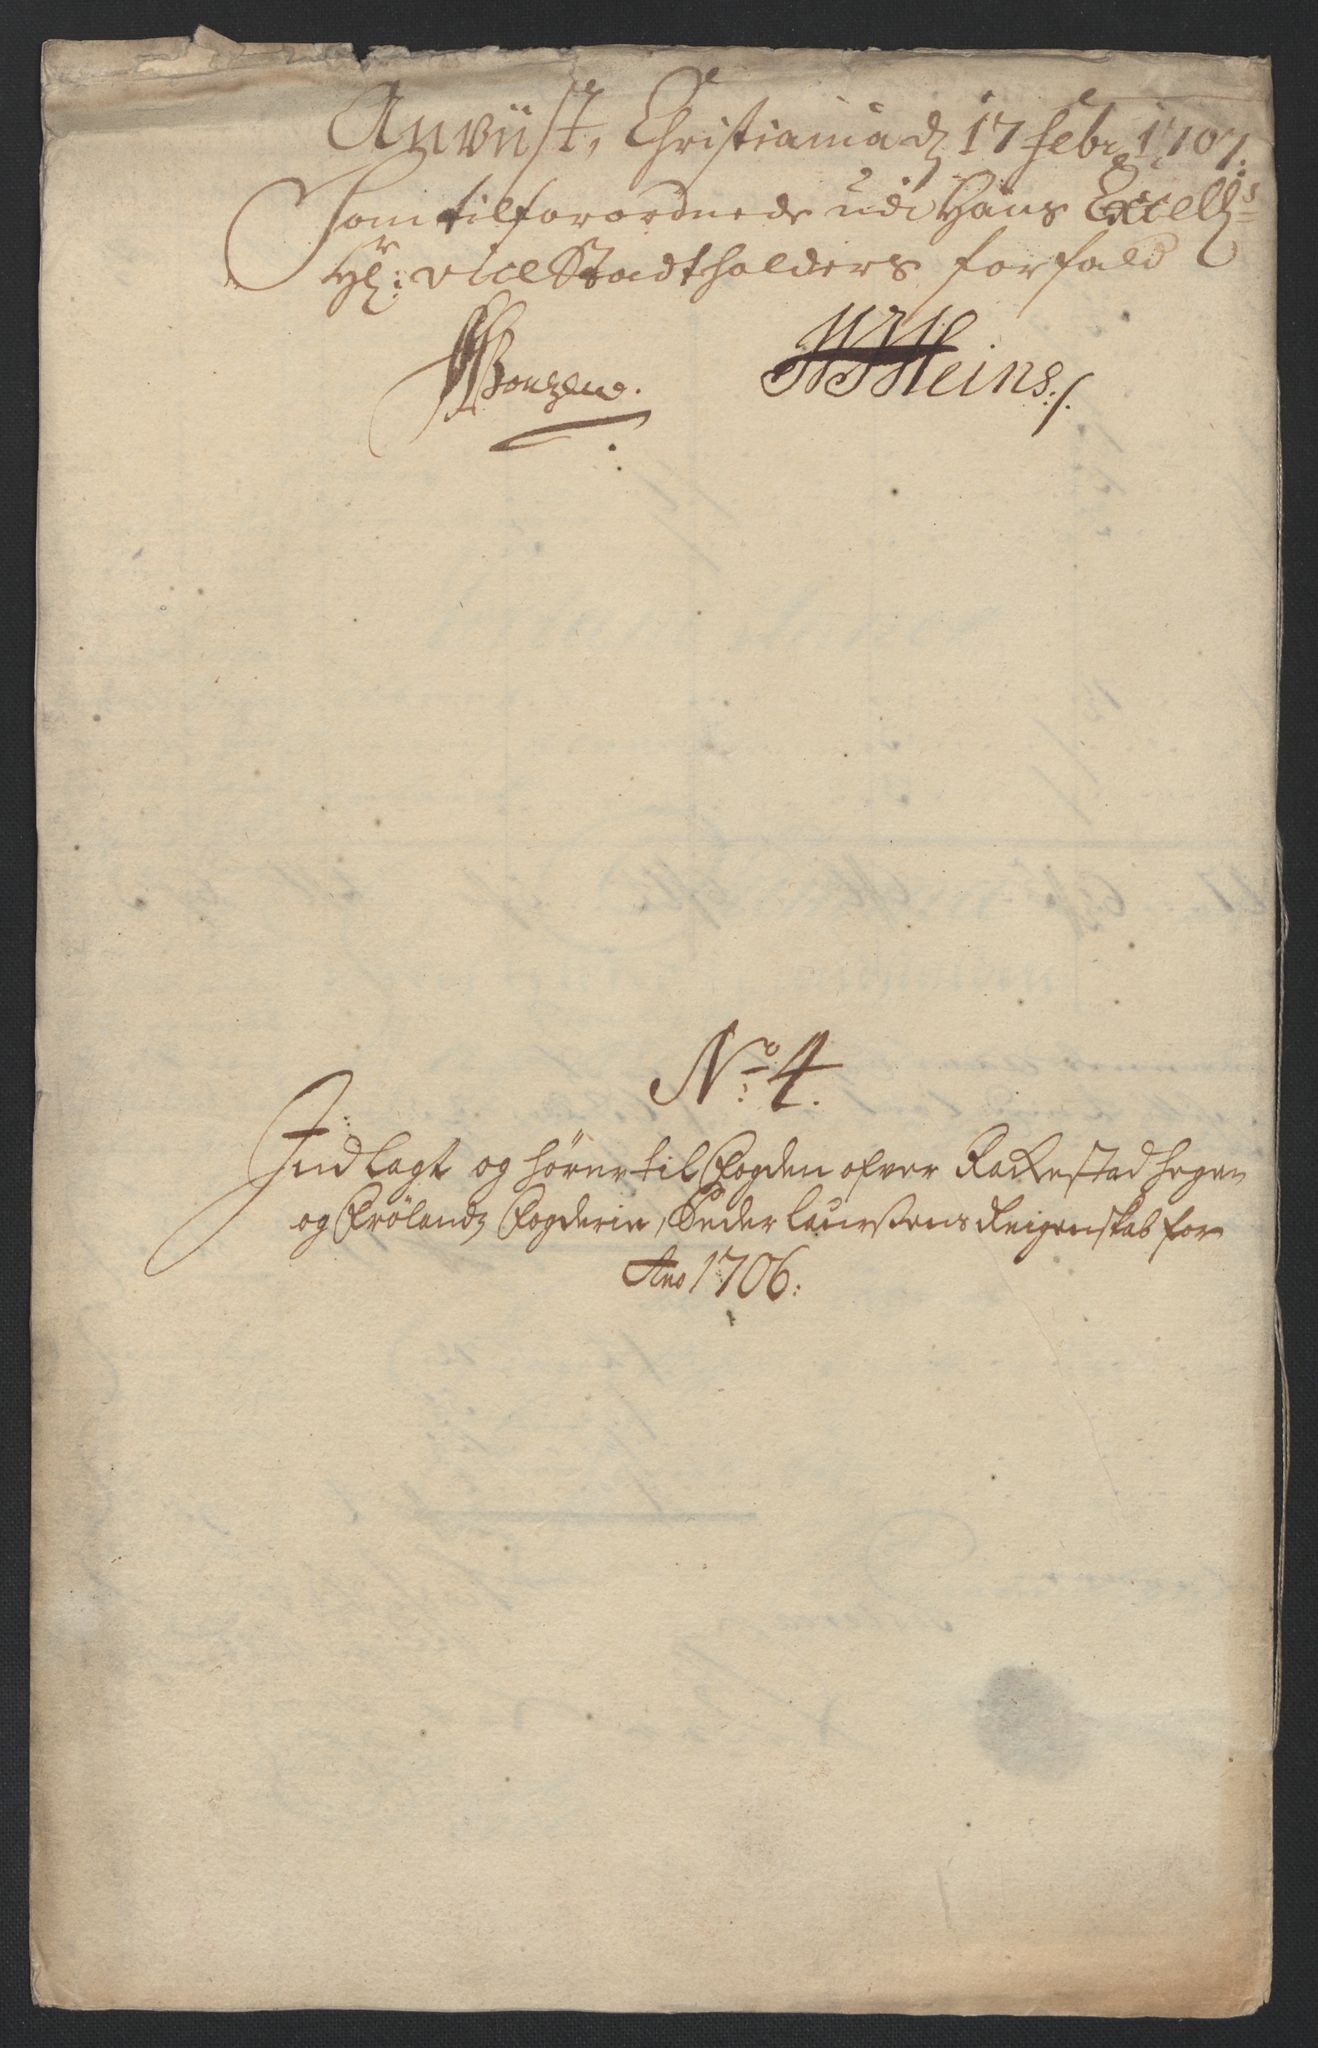 Anviist, Christiania d 17 febr 1707.
Som tilforordnede udi Hans Excell:s
Hr: vice Stadtholders forfald
WHeins:/.
No: 4.
Indlagt og hører til Fogden ofver Rackestad Hegen
og Frølandz Fogderie, Peder Laurssens Reigenskab for
Ano 1706: